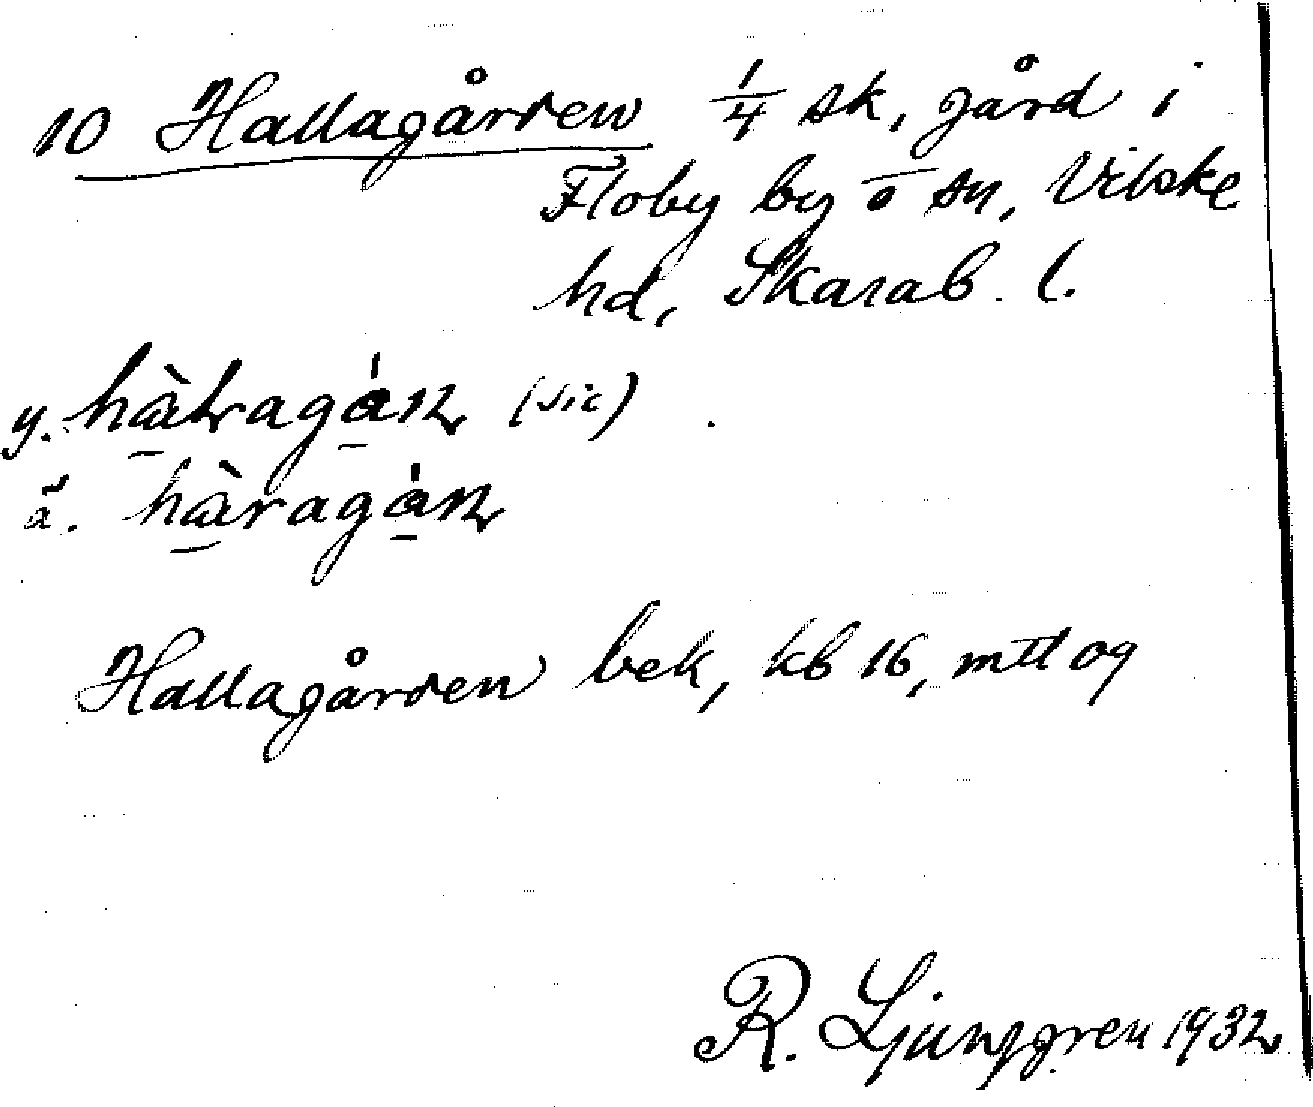 10 Hallagården 1/4 sk, gård i
Floby by o sn, Vilske
hd, Skarab. l.
y. hàlragá̱rn (sic)
ä. hàragá̱rn
Hallagården bek, kb 16, mtl og
R. Ljunggren 1932